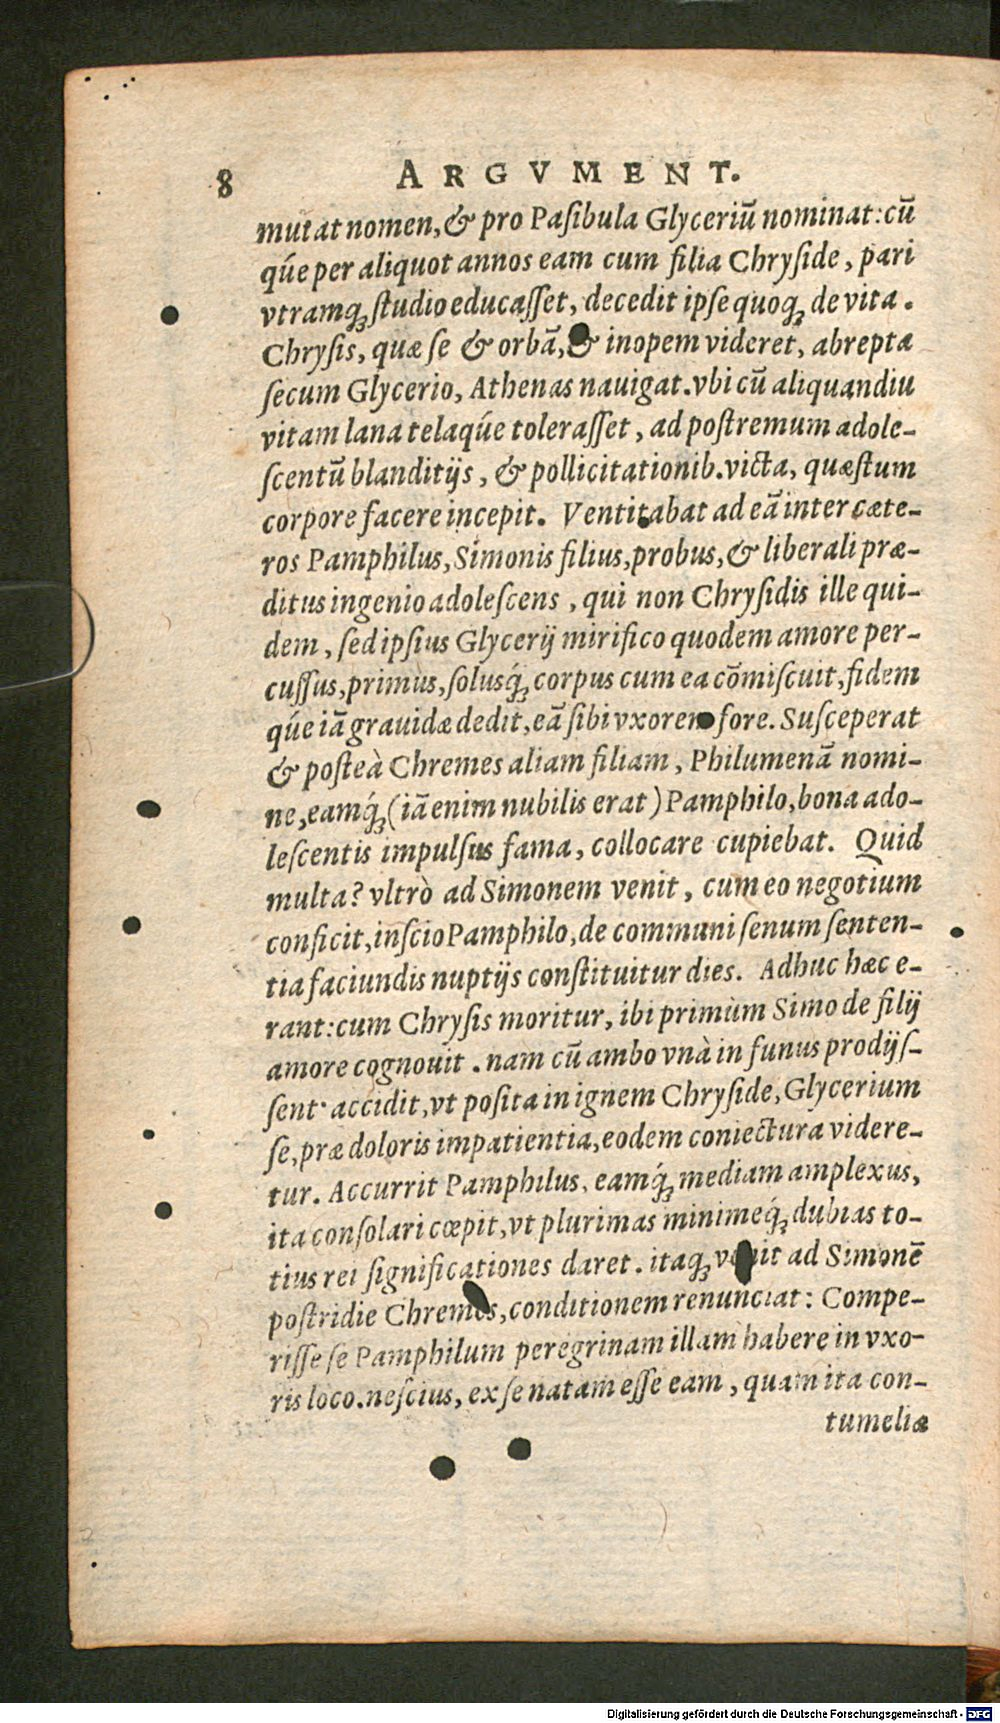 8 ARGVMENT.
mutat nomen, & pro Pasibula Glyceriũ nominat: cũ
q́ue per aliquot annos eam cum filia Chryside, pari
vtramq; studio educasset, decedit ipse quoq; de vita.
Chrysis, quæ se & orbã, & inopem videret, abrepta
secum Glycerio, Athenas nauigat. vbi cũ aliquandiu
vitam lana telaq́ue tolerasset, ad postremum adole-
scentũ blanditijs, & pollicitationib. victa, quæstum
corpore facere incepit. Ventitabat ad eã inter cæte-
ros Pamphilus, Simonis filius, probus, & liberali præ-
ditus ingenio adolescens, qui non Chrysidis ille qui-
dem, sed ipsius Glycerij mirifico quodem amore per-
cussus, primus, solusq́; corpus cum ea cõmiscuit, fidem
q́ue iã grauidæ dedit, eã sibi vxorem fore. Susceperat
& posteà Chremes aliam filiam, Philumenã nomi-
ne, eamq́; (iã enim nubilis erat) Pamphilo, bona ado-
lescentis impulsus fama, collocare cupiebat. Quid
multa? vltrò ad Simonem venit, cum eo negotium
conficit, inscio Pamphilo, de communi senum senten-
tia faciundis nuptijs constituitur dies. Adhuc hæc e-
rant: cum Chrysis moritur, ibi primùm Simo de filij
amore cognouit. nam cũ ambo vnà in funus prodijs-
sent accidit, vt posita in ignem Chryside, Glycerium
se, præ doloris impatientia, eodem coniectura videre-
tur. Accurrit Pamphilus, eamq́; mediam amplexus,
ita consolari cœpit, vt plurimas minimeq́; dubias to-
tius rei significationes daret. itaq; venit ad Simonẽ
postridie Chremes, conditionem renunciat: Compe-
risse se Pamphilum peregrinam illam habere in vxo-
ris loco. nescius, ex se natam esse eam, quam ita con-
tumeliæ
Digitalisierung gefördert durch die Deutsche Forschungsgemeinschaft - DFG